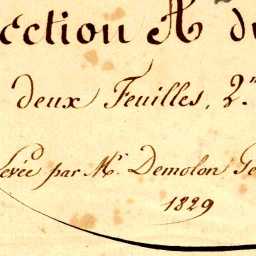 ection A d
deux Feuilles, 2.
levée par Mr. Demolon Ge
1829